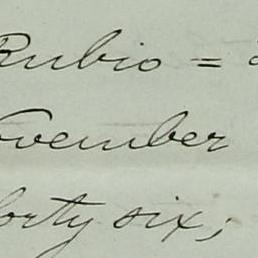 Rubio =
November
forty six;